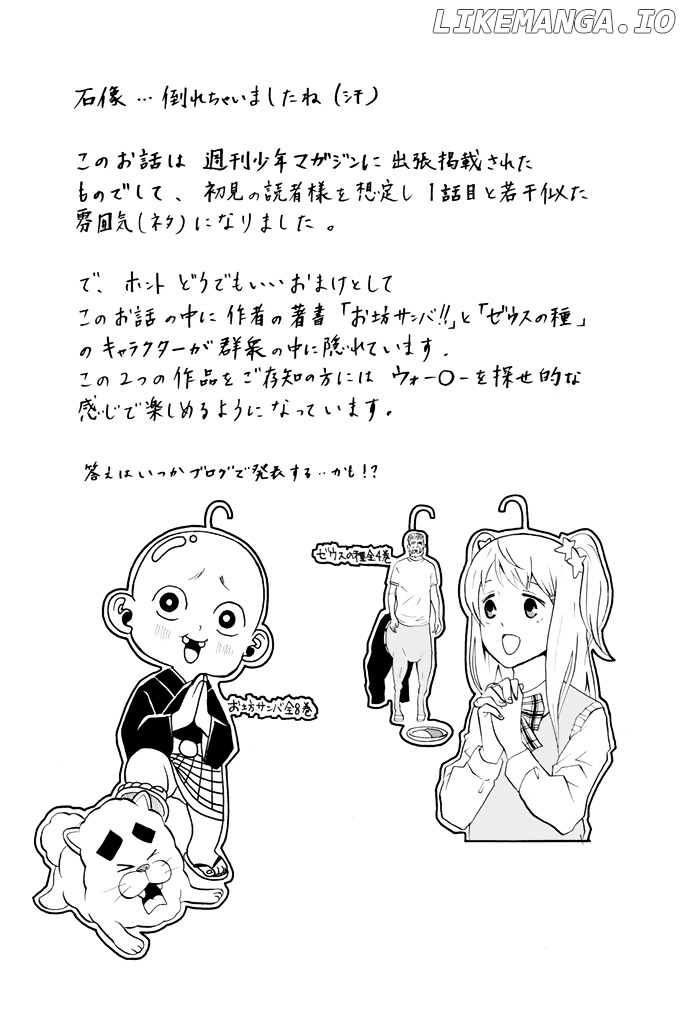 LIKEMANGA.IO
石像…倒れちゃいましたね(汗)
このお話は 週刊少年マガジンに出張掲載された
ものでして、初見の読者様を想定し1話目と若干似た
雰囲気(ネタ)になりました。
で、ホントどうでもいいおまけとして
このお話の中に作者の著書「お坊サンバ!!」と「ゼウスの種」
のキャラクターが群衆の中に隠れています.
この2つの作品をご存知の方にはウォー〇ーを探せ的な
感じで楽しめるようになっています。
答えはいつかブログで発表する‥かも!?
ゼウスの種全4巻
お坊サンバ全8巻